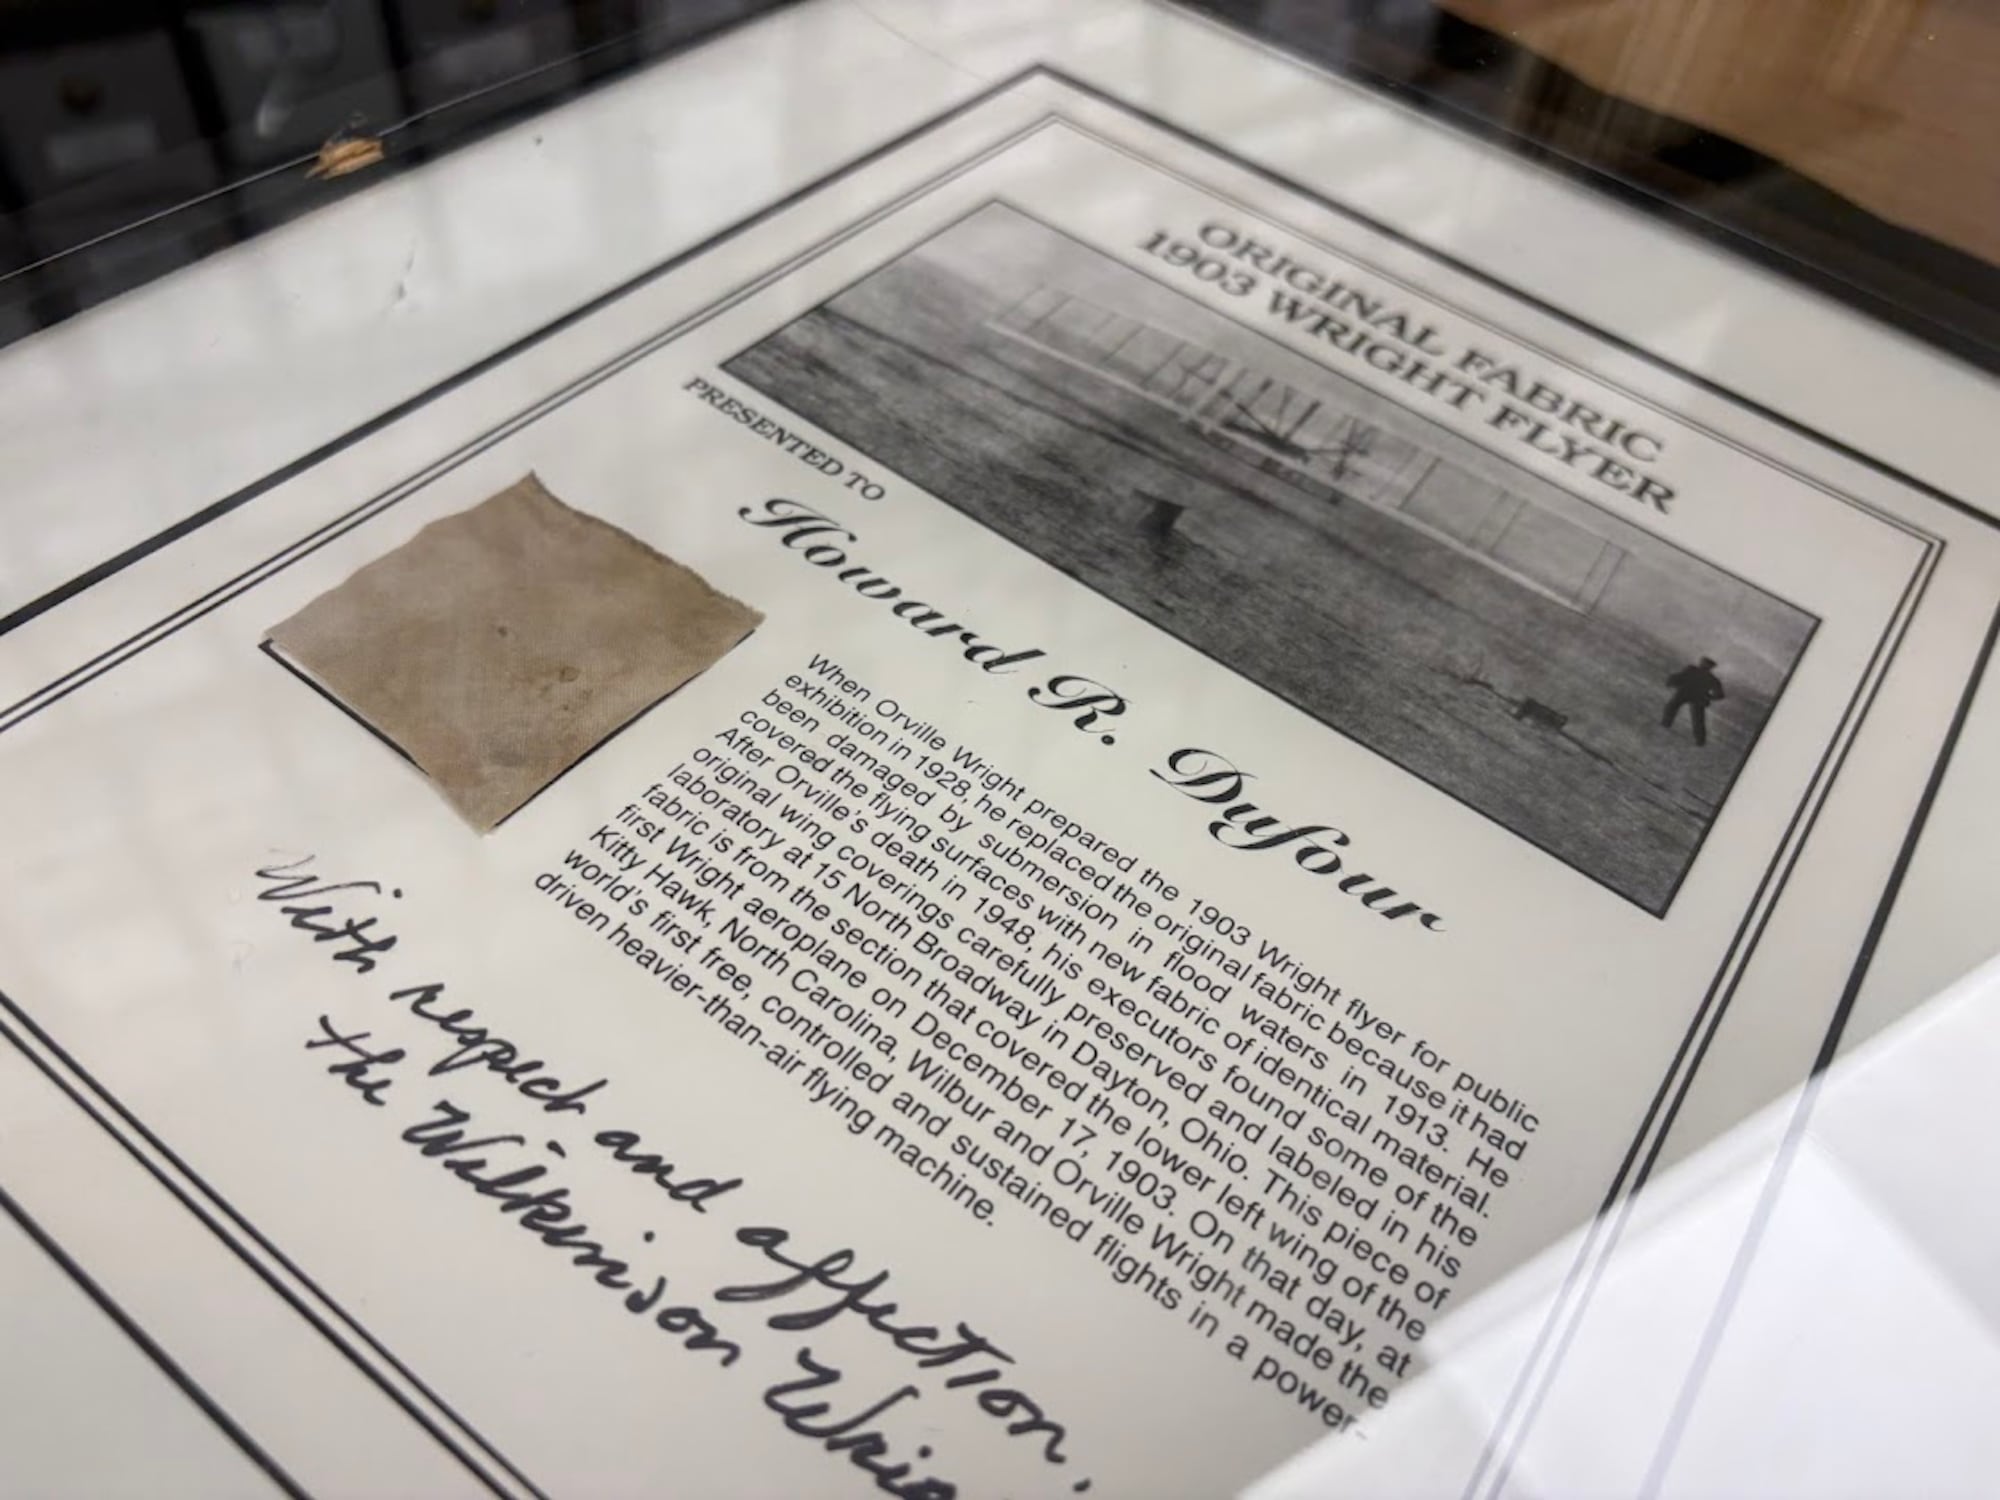 ORIGINAL FABRIC
1903 WRIGHT FLYER
PRESENTED TO
Howard R. Dufour
When Orville Wright prepared the 1903 Wright flyer for public
exhibition in 1928, he replaced the original fabric because it had
been damaged by submersion in flood waters in 1913. He
covered the flying surfaces with new fabric of identical material.
After Orville's death in 1948, his executors found some of the
original wing coverings carefully preserved and labeled in his
laboratory at 15 North Broadway in Dayton, Ohio. This piece of
fabric is from the section that covered the lower left wing of the
first Wright aeroplane on December 17, 1903. On that day, at
Kitty Hawk, North Carolina, Wilbur and Orville Wright made the
world's first free, controlled and sustained flights in a power-
driven heavier-than-air flying machine.
With respect and affection,
the Wilkinson